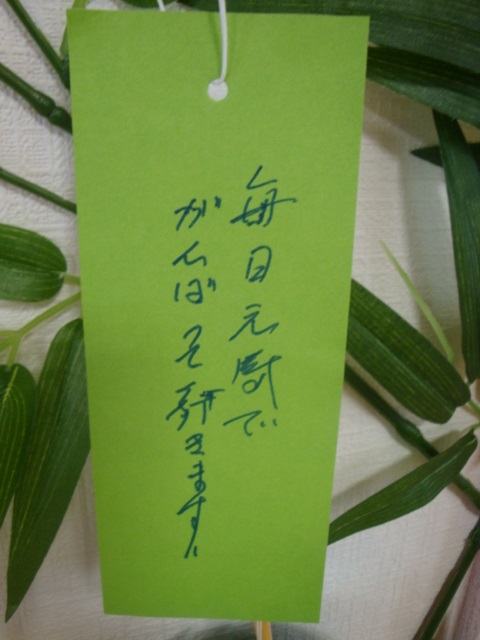 毎日元厨で
がんばって頑きます!!